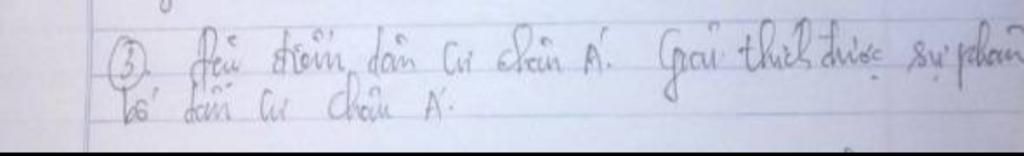 ③. Nêu điểm dân cư châu Á. Giải thích được sự phân
bố dân cư châu Á.